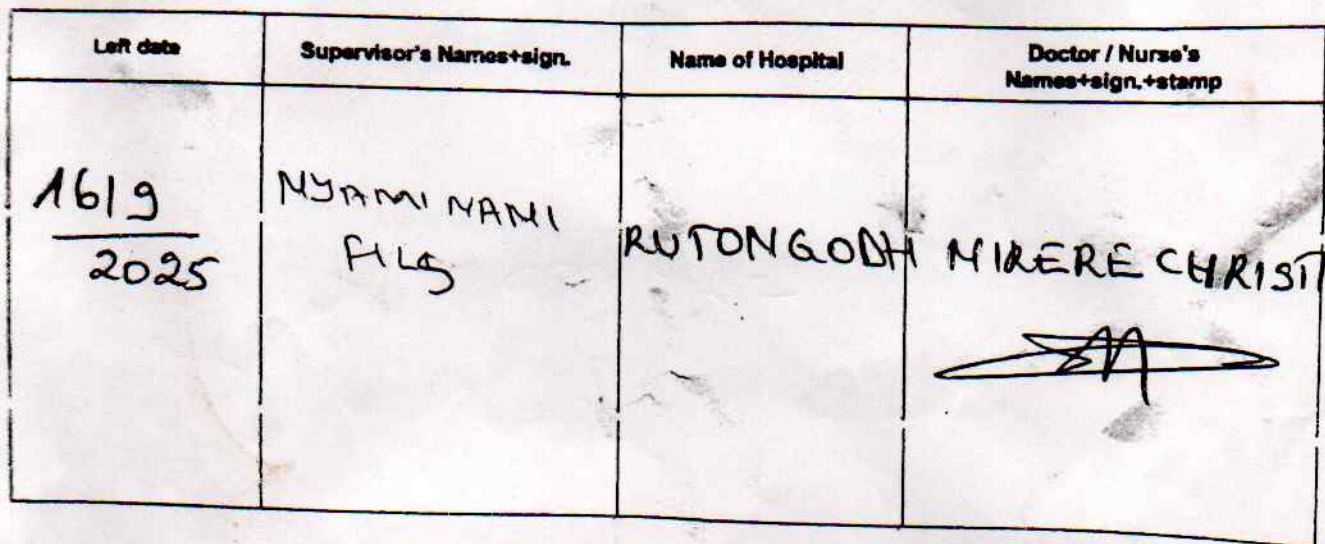 Left date
Supervisor's Names+sign.
Name of Hospital
Doctor / Nurse's
Names+sign.+stamp
16/9
2025
NYAMINANI
FILS
RUTONGODH
MIRERE CHRIST